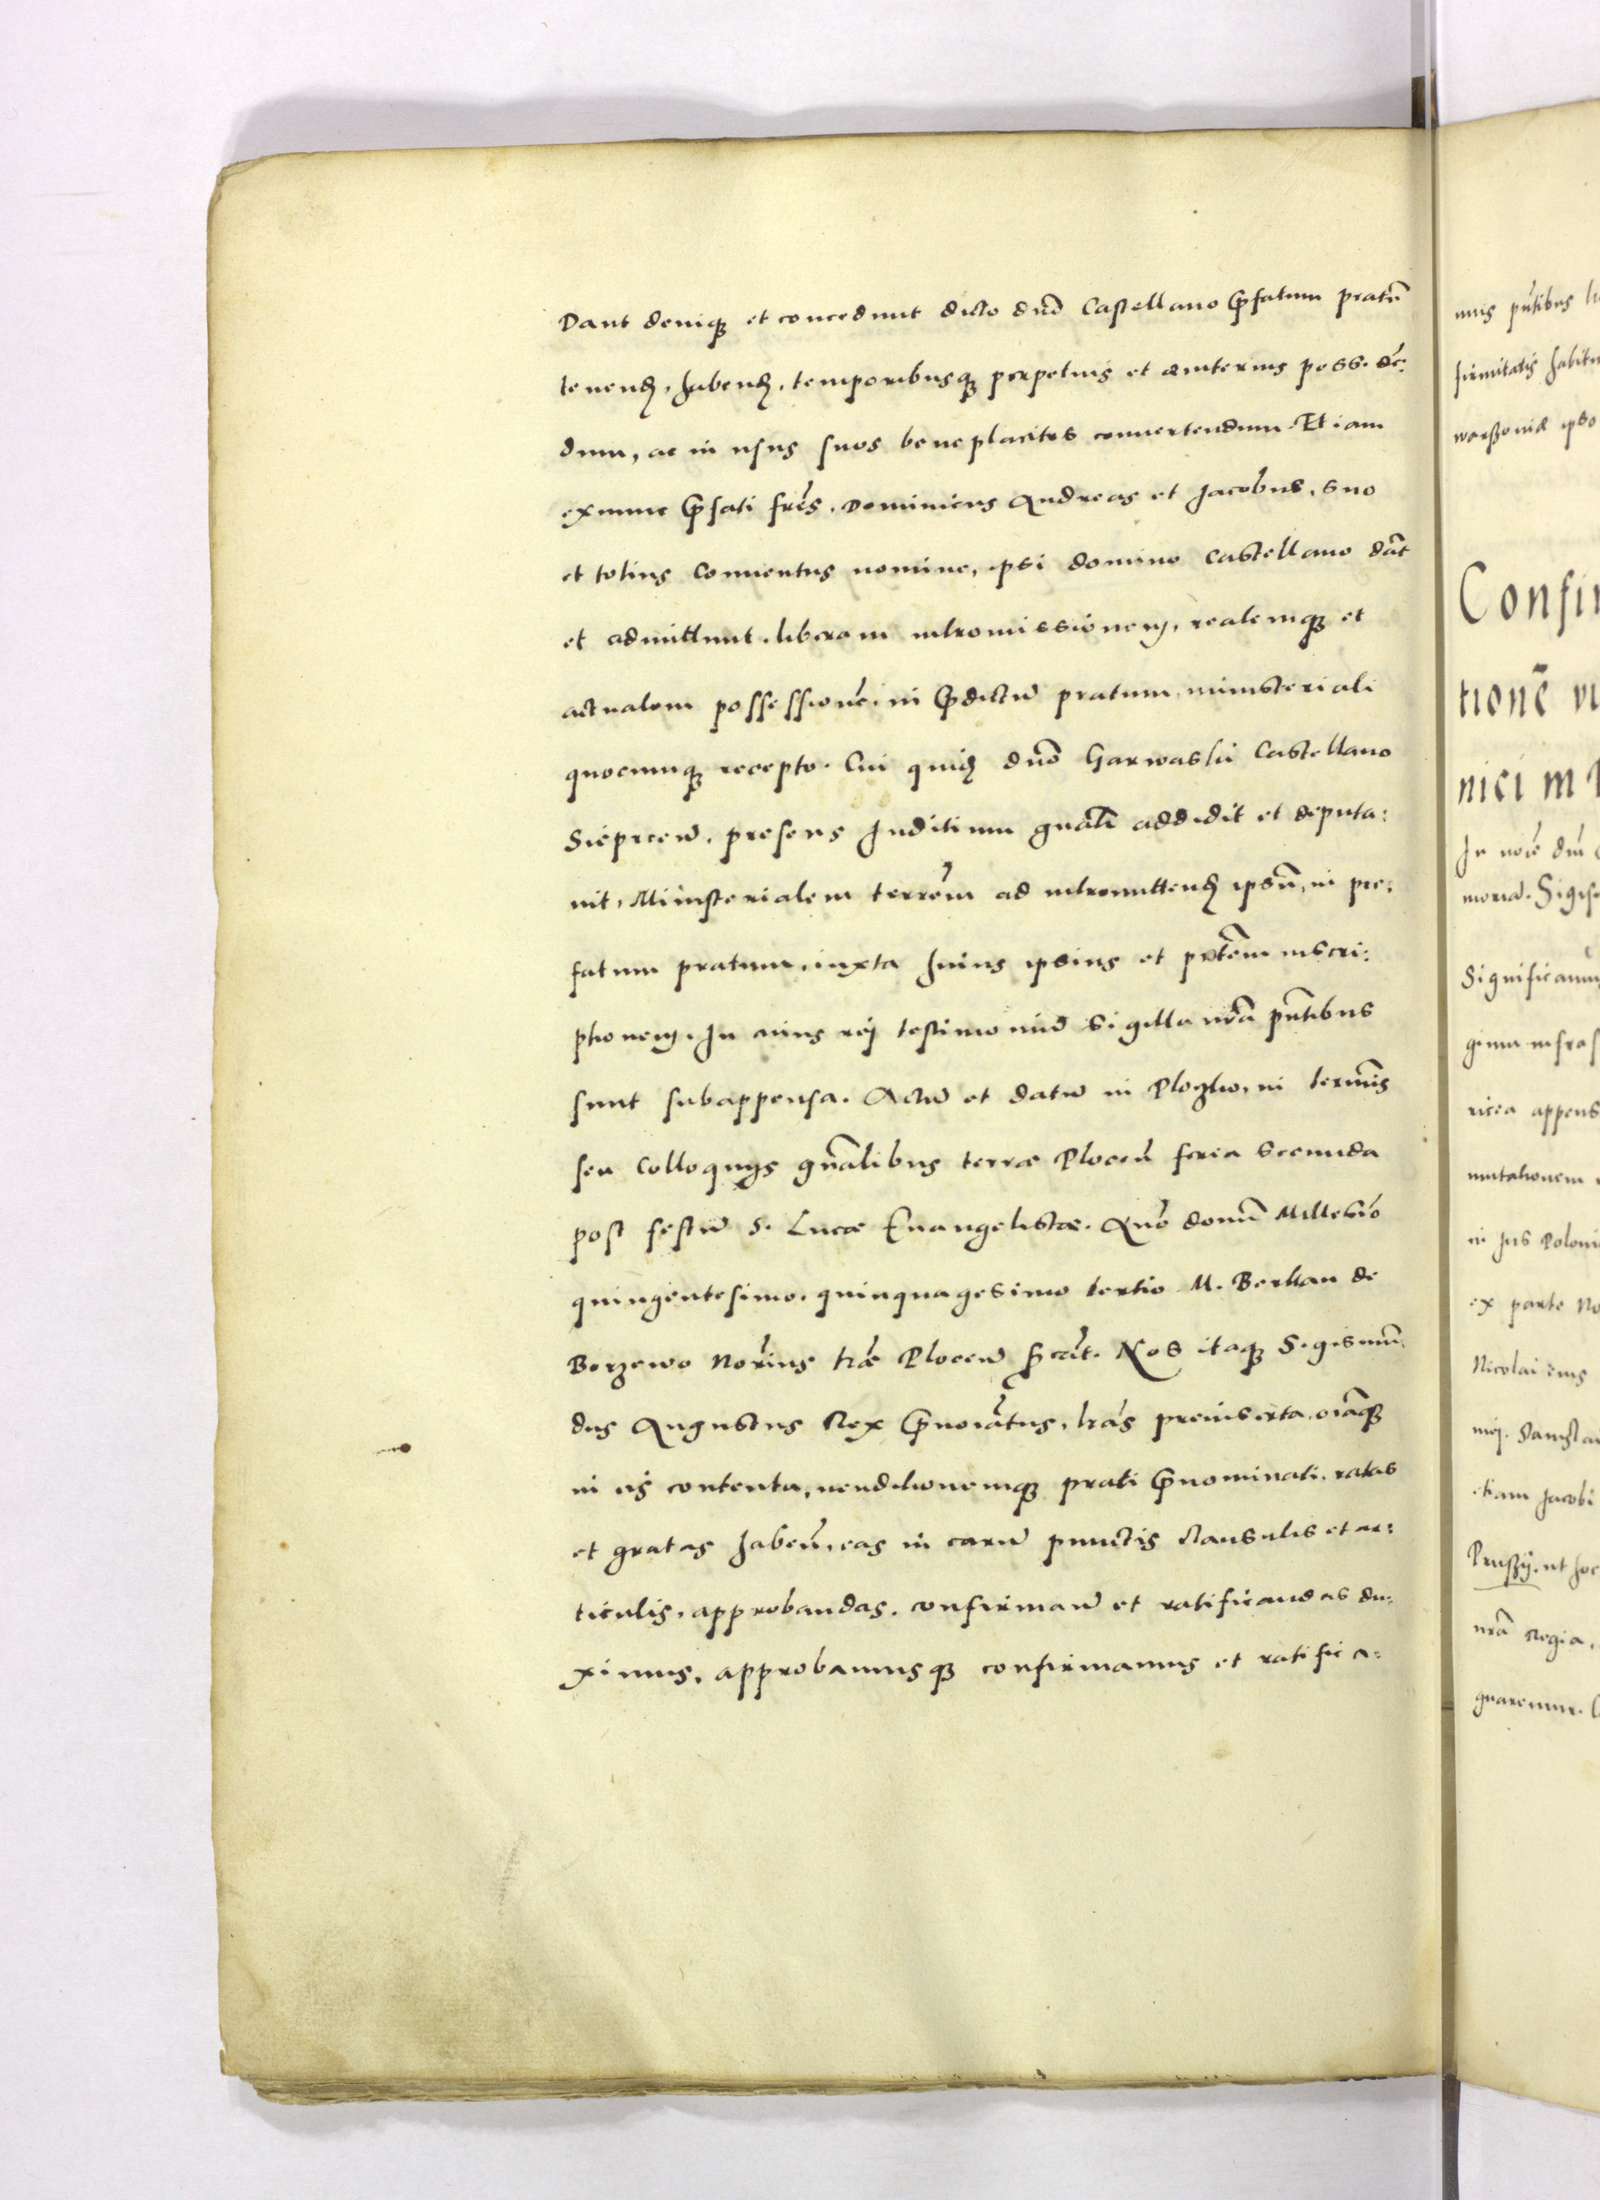 Dant deniq₃ et concedunt dicto dnō Castellano P̄fatum pratū
tenend₃, habend₃, temporibusq₃ perpetuis et æuiternis poss. dē:
dum, ac in usus suos beneplacitos conuertendum. Et iam
ex nunc P̄fati frēs, Dominicus Andreas et Jacobus, suo
et totius Conuentus nomine, ipsi domino Castellano dāt
et admittunt liberam intromissionem, realemq₃ et
actualem possessionē, in P̄dictū pratum, ministeriali
quocunq₃ recepto. Cui quid₃ dnō Garwaski Castellano
Sieprcen̄, presens Juditium gnāli addidit et deputa:
uit, Ministerialem terrēm ad intromittend₃ ipsū, in pre:
fatum pratum, iuxta huius ipsius et pntēm inscri:
ptionem. In cuius rej testimoniū sigilla nrā pntibus
sunt subappensa. Actū et datū in Plogko, in termīs
seu Colloquijs gnālibus terræ Plocen̄ feria secunda
post festū S. Lucæ Euangelistæ. Anō domī Millesiō
quingentesimo, quinquagesimo tertio M. Berkan de
Borzewo Norīus træ Plocen̄ scrīt. Nos itaq₃ Sigismū:
dus Augustus Rex P̄noiātus, lrās preinserta, oīaq₃
in eis contenta, uenditionemq₃ prati P̄nominati, ratas
et gratas haben̄, eas in earū punctis clausulis et ar:
ticulis, approbandas, confirman̄ et ratificandas du:
ximus, approbamusq₃ confirmamus et ratifica:
nuis pntibus
firmitatis habitu
warssouiæ ipso
Confir
tionē
nici in
In noīe dnī
moriā. Sigis
Significamus
ricea appens
mutationem
in Jus Poloni
ex parte No
Nicolai
etiam Jacobi
Prussij, ut hoc
nrā Regia,